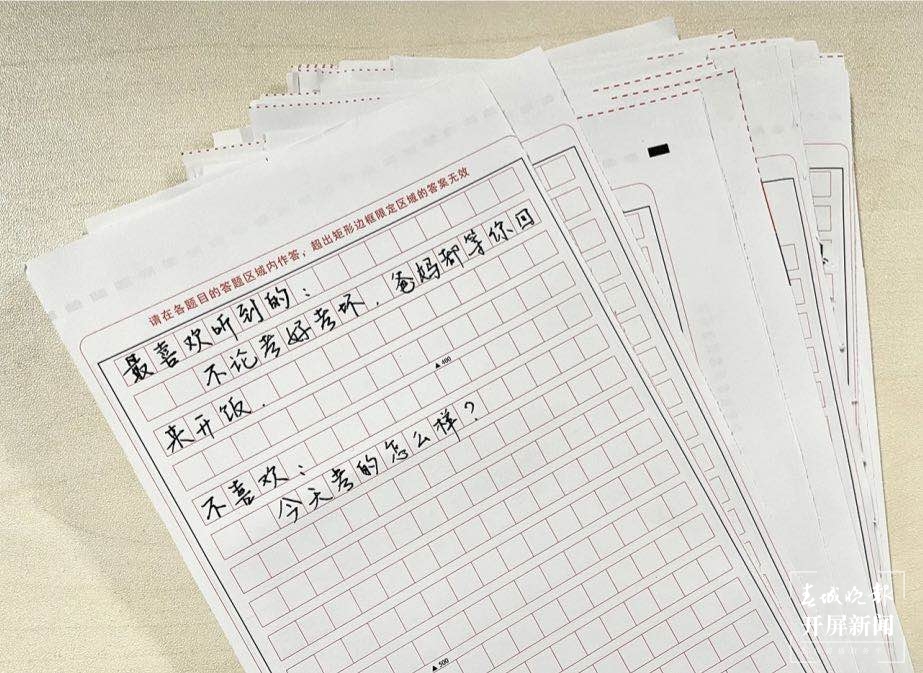 请在各题目的答题区域内作答，超出矩形边框限定区域的答案无效
最喜欢听到的：
不论考好考坏，爸妈都等你回
▲400
来开饭.
不喜欢：
今天考的怎么样？
▲500
春城晚报
开屏新闻